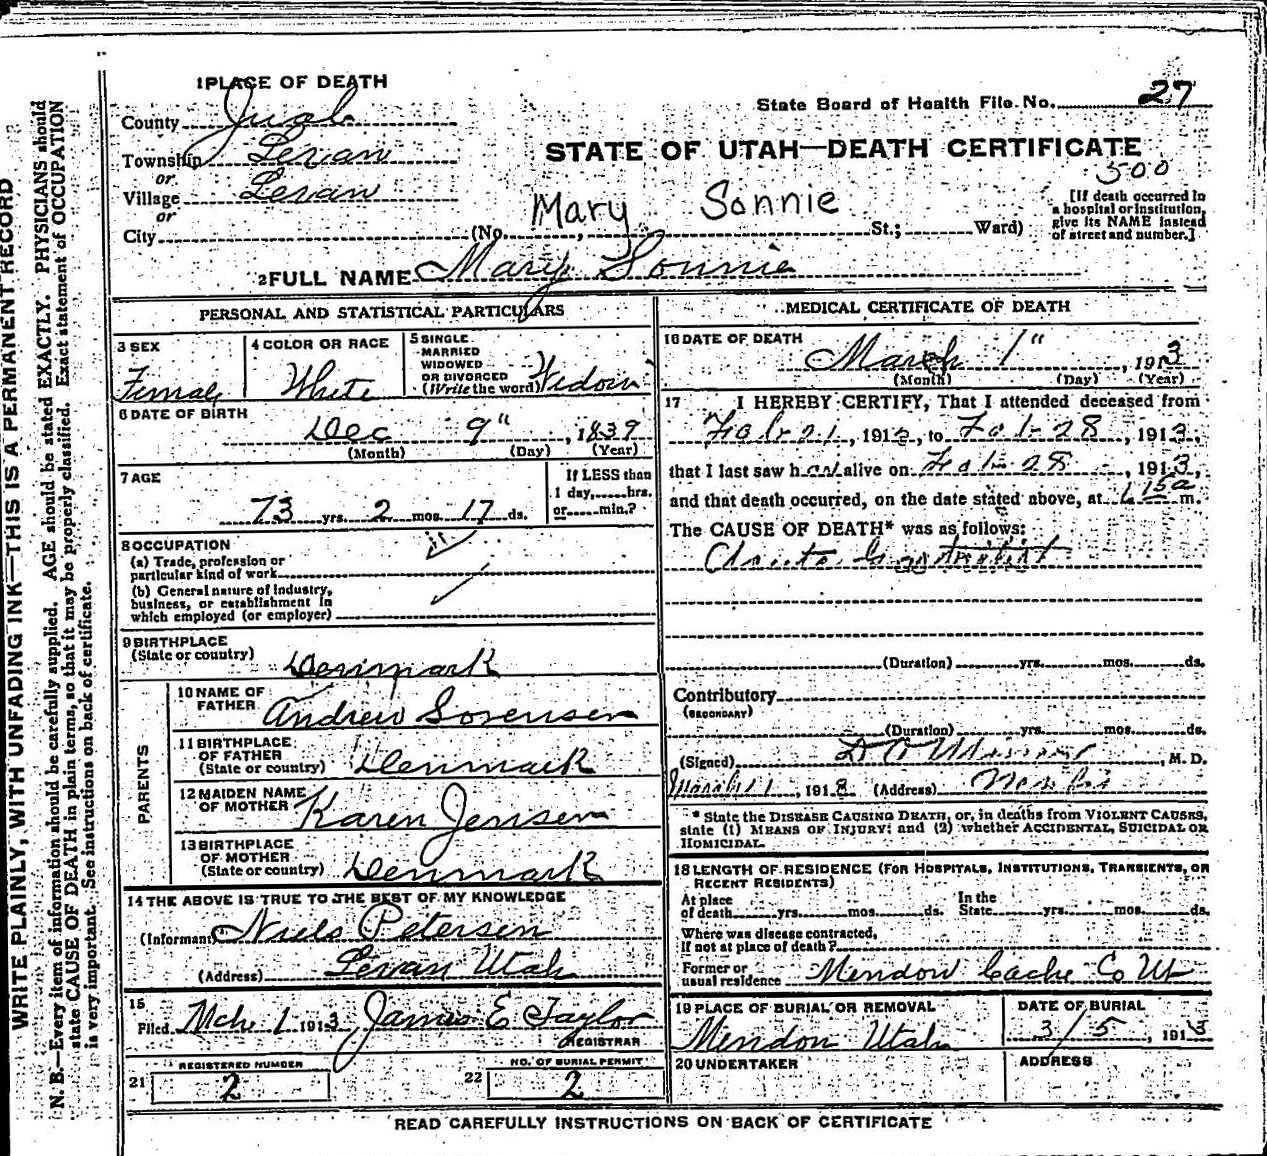 WRITE PLAINLY, WITH UNFADING INK—THIS IS A PERMANENT RECORD
N. B.—Every item of information should be carefully supplied. AGE should be stated EXACTLY. PHYSICIANS should
state CAUSE OF DEATH in plain terms, so that it may be properly classified. Exact statement of OCCUPATION
is very important. See instructions on back of certificate.
1 PLACE OF DEATH
State Board of Health File. No. 27
County Juab
Township Levan
or
STATE OF UTAH—DEATH CERTIFICATE
500
Village Levan
or
Mary Sonnie
City (No. , St.; Ward)
[If death occurred in
a hospital or institution,
give its NAME instead
of street and number.]
2 FULL NAME Mary Sonnie
PERSONAL AND STATISTICAL PARTICULARS
3 SEX
Female
4 COLOR OR RACE
White
5 SINGLE
MARRIED
WIDOWED
OR DIVORCED
(Write the word) Widow
6 DATE OF BIRTH
Dec 9" , 1839
(Month) (Day) (Year)
7 AGE
73 yrs. 2 mos. 17 ds.
If LESS than
1 day, hrs.
or min.?
8 OCCUPATION
(a) Trade, profession or
particular kind of work
(b) General nature of industry,
business, or establishment in
which employed (or employer)
9 BIRTHPLACE
(State or country) Denmark
PARENTS
10 NAME OF
FATHER Andrew Sorensen
11 BIRTHPLACE
OF FATHER
(State or country) Denmark
12 MAIDEN NAME
OF MOTHER Karen Jensen
13 BIRTHPLACE
OF MOTHER
(State or country) Denmark
14 THE ABOVE IS TRUE TO THE BEST OF MY KNOWLEDGE
(Informant) Niels Petersen
(Address) Levan Utah
15
Filed Mch 1 1913 James E Taylor
REGISTRAR
REGISTERED NUMBER
21 2
NO. OF BURIAL PERMIT
22 2
MEDICAL CERTIFICATE OF DEATH
16 DATE OF DEATH
March 1" , 1913
(Month) (Day) (Year)
17 I HEREBY CERTIFY, That I attended deceased from
Feb 21 , 1913, to Feb 28 , 1913,
that I last saw her alive on Feb 28 , 1913,
and that death occurred, on the date stated above, at 1 15a m.
The CAUSE OF DEATH* was as follows:
(Duration) yrs. mos. ds.
Contributory
(SECONDARY)
(Duration) yrs. mos. ds.
(Signed) , M. D.
March 1 , 1913 (Address)
* State the DISEASE CAUSING DEATH, or, in deaths from VIOLENT CAUSES,
state (1) MEANS OF INJURY; and (2) whether ACCIDENTAL, SUICIDAL OR
HOMICIDAL.
18 LENGTH OF RESIDENCE (FOR HOSPITALS, INSTITUTIONS, TRANSIENTS, OR
RECENT RESIDENTS)
At place
of death yrs. mos. ds.
In the
State yrs. mos. ds.
Where was disease contracted,
If not at place of death?
Former or
usual residence Mendon Cache Co Ut
19 PLACE OF BURIAL OR REMOVAL
Mendon Utah
DATE OF BURIAL
3/5 , 1913
20 UNDERTAKER
ADDRESS
READ CAREFULLY INSTRUCTIONS ON BACK OF CERTIFICATE